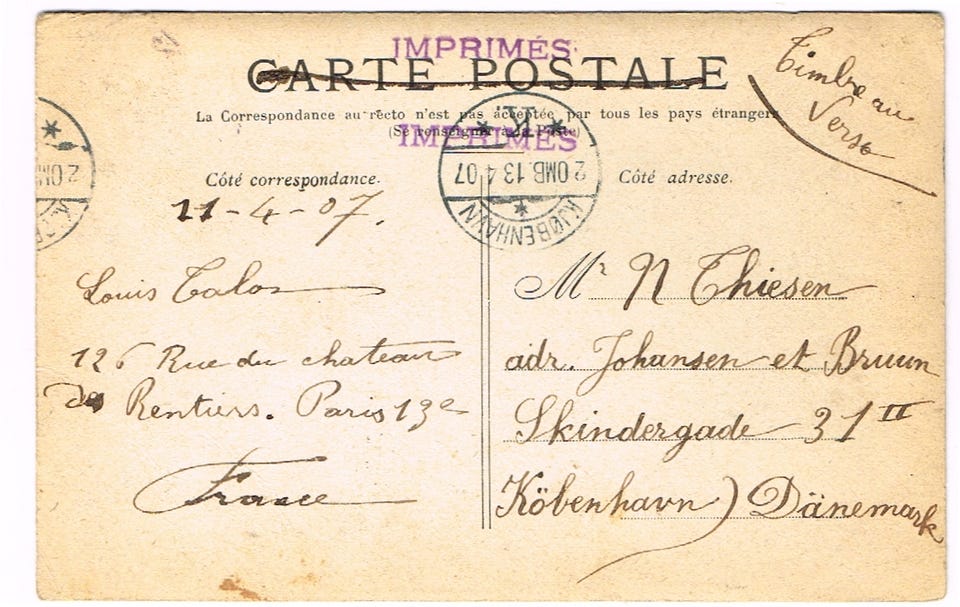 IMPRIMÉS
CARTE POSTALE
Timbre au
Verso
La Correspondance au recto n'est pas acceptée par tous les pays étrangers
(Se renseigner à la Poste)
IMPRIMÉS
KJØBENHAVN
2 OMB. 13 4 07
2 OMB
Côté correspondance.
Côté adresse.
11-4-07.
Louis Talon
126 Rue du chateau
des Rentiers. Paris 13e
France
Mr N Thiesen
adr. Johansen et Bruun
Skindergade 31 II
Köbenhavn) Dänemark